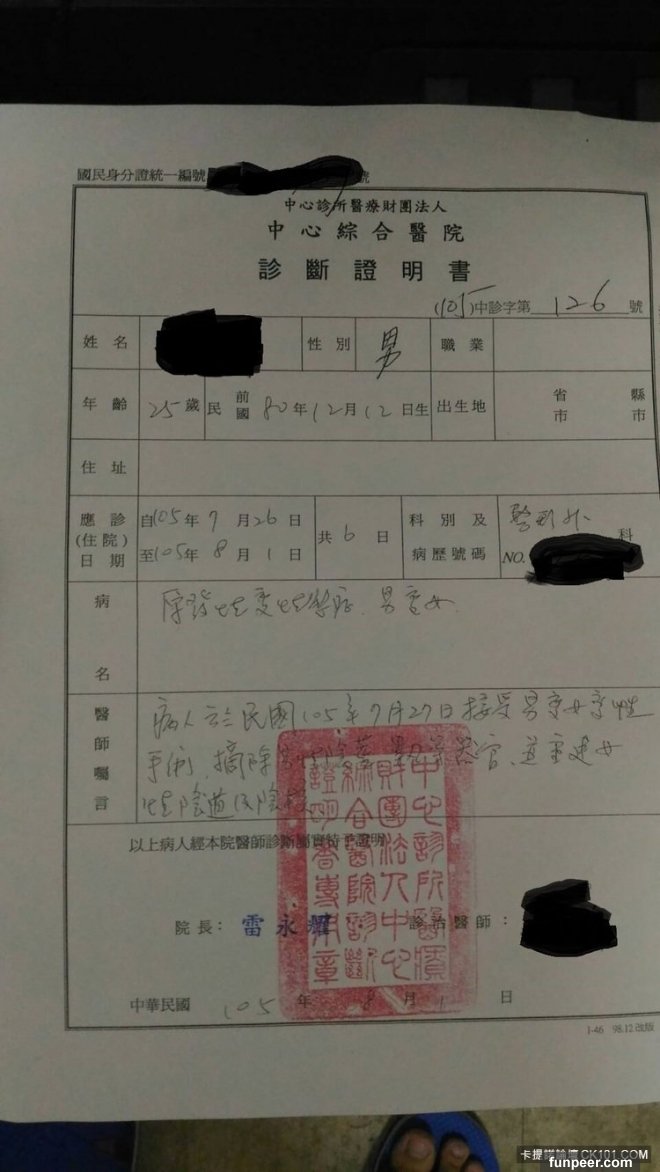 國民身分證統一編號 號
中心診所醫療財團法人
中心綜合醫院
診斷證明書
(105)中診字第 126 號
姓名 性別 男 職業
年齡 25歲 民 前 國 80年12月12日生 出生地 省 市 縣 市
住址
應診(住院)日期 自105年7月26日 至105年8月1日 共6日 科別及病歷號碼 整形外科 NO.
病名 原發性變性慾症、男變女
醫師囑言 病人於民國105年7月27日接受男變女變性
手術,摘除 器官,並重建女
性陰道及陰
以上病人經本院醫師診斷屬實特予證明
中心診所醫療財團法人中心綜合醫院診斷證明書專用章
院長: 雷永耀 診治醫師:
中華民國 105 年 8 月 1 日
1-46 98.12改版
卡提諾論壇CK101.COM
funpeer.com